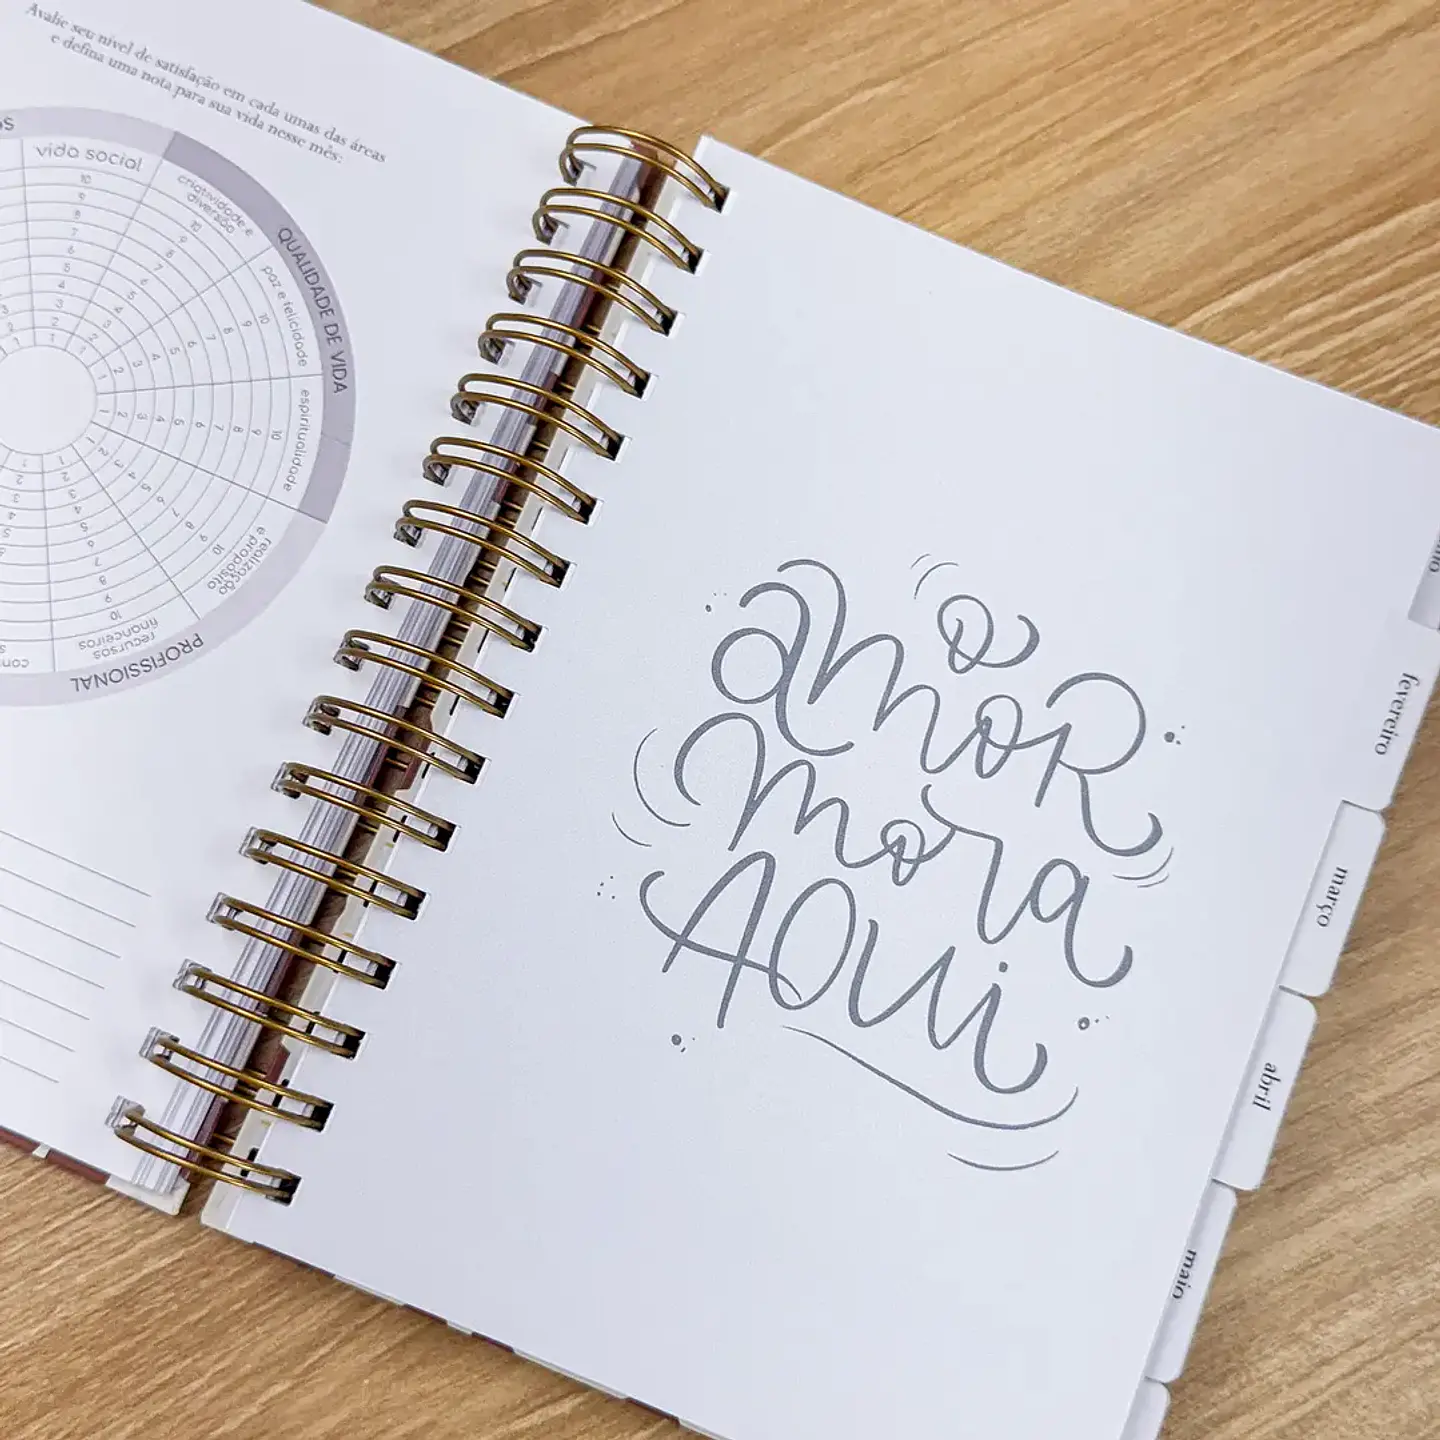 Avalie seu nível de satisfação em cada umas das áreas
e defina uma nota para sua vida nesse mês:
vida social
criatividade e
diversão
QUALIDADE DE VIDA
paz e felicidade
espiritualidade
realização
e propósito
recursos
financeiros
PROFISSIONAL
10
9
8
7
6
5
4
3
2
1
o
amor
mora
aqui
fevereiro
março
abril
maio